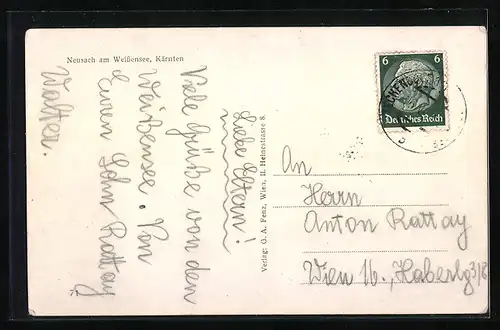 Neusach am Weißensee, Kärnten
Liebe Eltern!
Viele Grüße von den
Weißensee. Von
Euren Sohn Rattay
Walter.
Verlag: O. A. Fenz, Wien, II. Heinestrasse 8.
6 6
Deutsches Reich
An
Herrn
Anton Rattay
Wien 16., Haberlg 3/8